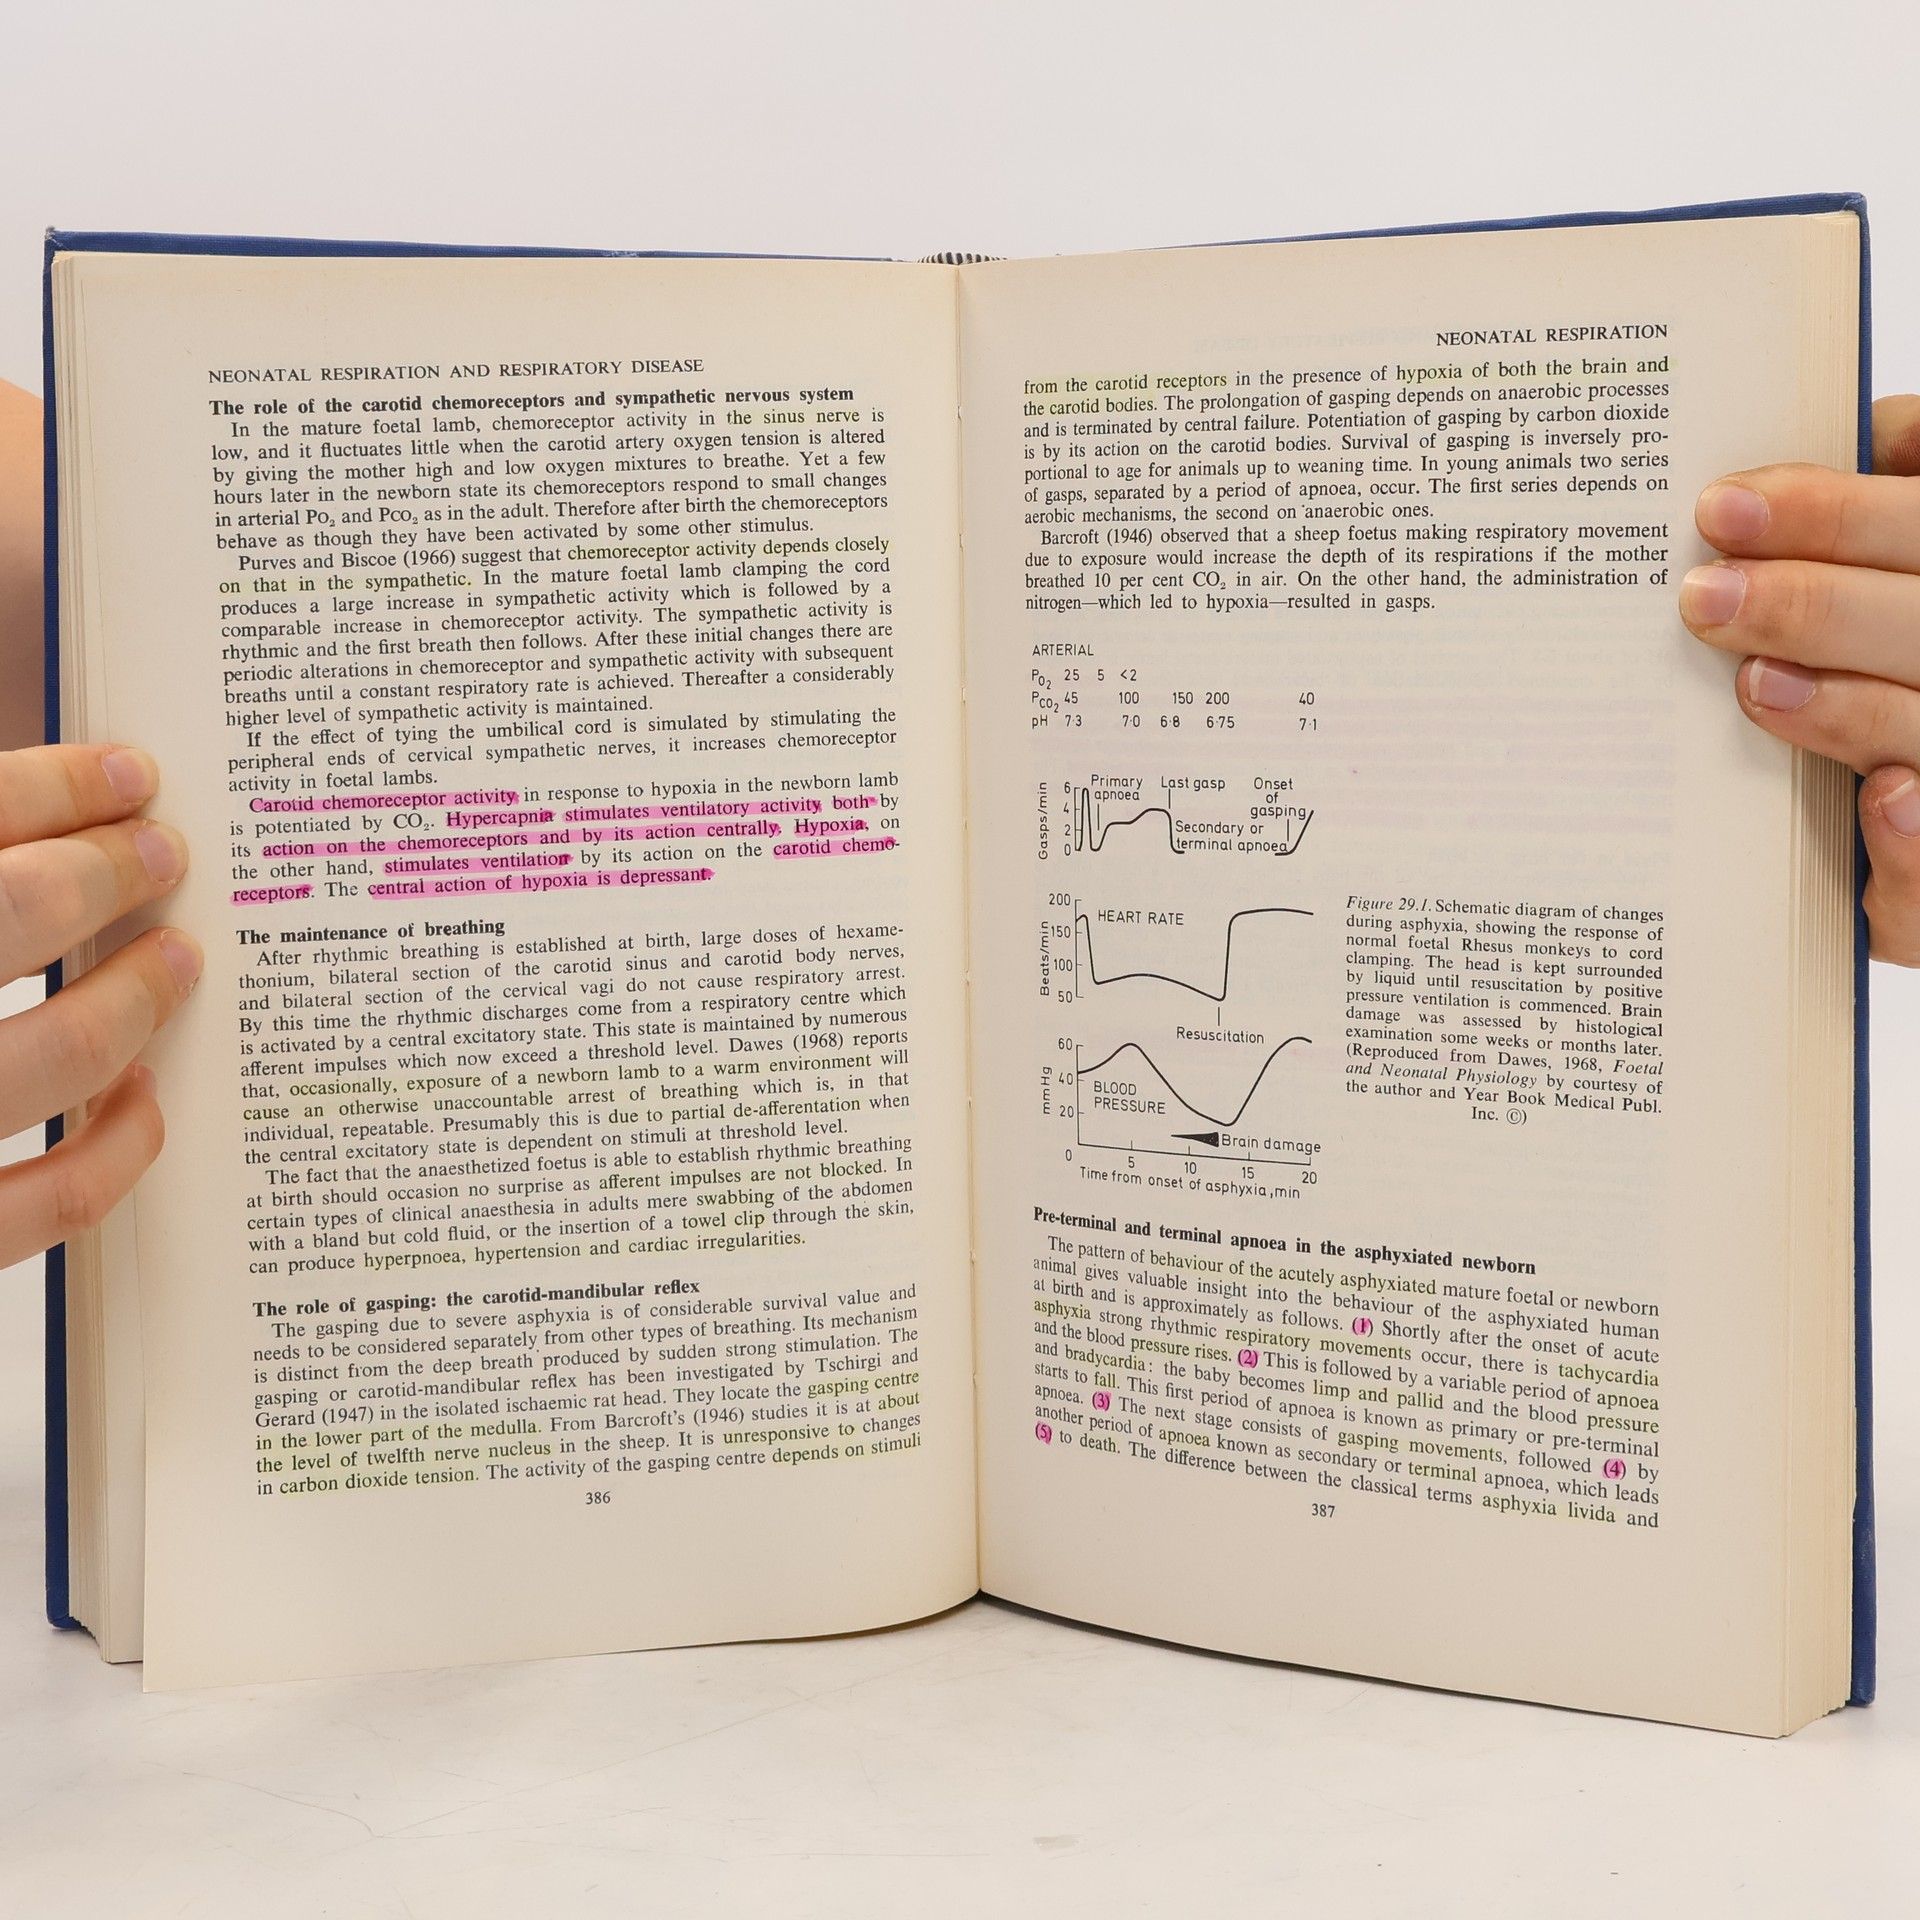 NEONATAL RESPIRATION AND RESPIRATORY DISEASE
The role of the carotid chemoreceptors and sympathetic nervous system
In the mature foetal lamb, chemoreceptor activity in the sinus nerve is
low, and it fluctuates little when the carotid artery oxygen tension is altered
by giving the mother high and low oxygen mixtures to breathe. Yet a few
hours later in the newborn state its chemoreceptors respond to small changes
in arterial PO₂ and PCO₂ as in the adult. Therefore after birth the chemoreceptors
behave as though they have been activated by some other stimulus.
Purves and Biscoe (1966) suggest that chemoreceptor activity depends closely
on that in the sympathetic. In the mature foetal lamb clamping the cord
produces a large increase in sympathetic activity which is followed by a
comparable increase in chemoreceptor activity. The sympathetic activity is
rhythmic and the first breath then follows. After these initial changes there are
periodic alterations in chemoreceptor and sympathetic activity with subsequent
breaths until a constant respiratory rate is achieved. Thereafter a considerably
higher level of sympathetic activity is maintained.
If the effect of tying the umbilical cord is simulated by stimulating the
peripheral ends of cervical sympathetic nerves, it increases chemoreceptor
activity in foetal lambs.
Carotid chemoreceptor activity in response to hypoxia in the newborn lamb
is potentiated by CO₂. Hypercapnia stimulates ventilatory activity both by
its action on the chemoreceptors and by its action centrally. Hypoxia, on
the other hand, stimulates ventilation by its action on the carotid chemo-
receptors. The central action of hypoxia is depressant.
The maintenance of breathing
After rhythmic breathing is established at birth, large doses of hexame-
thonium, bilateral section of the carotid sinus and carotid body nerves,
and bilateral section of the cervical vagi do not cause respiratory arrest.
By this time the rhythmic discharges come from a respiratory centre which
is activated by a central excitatory state. This state is maintained by numerous
afferent impulses which now exceed a threshold level. Dawes (1968) reports
that, occasionally, exposure of a newborn lamb to a warm environment will
cause an otherwise unaccountable arrest of breathing which is, in that
individual, repeatable. Presumably this is due to partial de-afferentation when
the central excitatory state is dependent on stimuli at threshold level.
The fact that the anaesthetized foetus is able to establish rhythmic breathing
at birth should occasion no surprise as afferent impulses are not blocked. In
certain types of clinical anaesthesia in adults mere swabbing of the abdomen
with a bland but cold fluid, or the insertion of a towel clip through the skin,
can produce hyperpnoea, hypertension and cardiac irregularities.
The role of gasping: the carotid-mandibular reflex
The gasping due to severe asphyxia is of considerable survival value and
needs to be considered separately from other types of breathing. Its mechanism
is distinct from the deep breath produced by sudden strong stimulation. The
gasping or carotid-mandibular reflex has been investigated by Tschirgi and
Gerard (1947) in the isolated ischaemic rat head. They locate the gasping centre
in the lower part of the medulla. From Barcroft's (1946) studies it is at about
the level of twelfth nerve nucleus in the sheep. It is unresponsive to changes
in carbon dioxide tension. The activity of the gasping centre depends on stimuli
386
NEONATAL RESPIRATION
from the carotid receptors in the presence of hypoxia of both the brain and
the carotid bodies. The prolongation of gasping depends on anaerobic processes
and is terminated by central failure. Potentiation of gasping by carbon dioxide
is by its action on the carotid bodies. Survival of gasping is inversely pro-
portional to age for animals up to weaning time. In young animals two series
of gasps, separated by a period of apnoea, occur. The first series depends on
aerobic mechanisms, the second on anaerobic ones.
Barcroft (1946) observed that a sheep foetus making respiratory movement
due to exposure would increase the depth of its respirations if the mother
breathed 10 per cent CO₂ in air. On the other hand, the administration of
nitrogen—which led to hypoxia—resulted in gasps.
ARTERIAL
PO₂ 25 5 <2
PCO₂ 45 100 150 200 40
pH 7·3 7·0 6·8 6·75 7·1
Gasps/min
6
4
2
0
Primary
apnoea
Last gasp
Onset
of
gasping
Secondary or
terminal apnoea
Beats/min
200
150
100
50
HEART RATE
Resuscitation
mmHg
60
40
20
0
BLOOD
PRESSURE
Brain damage
5 10 15 20
Time from onset of asphyxia, min
Figure 29.1. Schematic diagram of changes
during asphyxia, showing the response of
normal foetal Rhesus monkeys to cord
clamping. The head is kept surrounded
by liquid until resuscitation by positive
pressure ventilation is commenced. Brain
damage was assessed by histological
examination some weeks or months later.
(Reproduced from Dawes, 1968, Foetal
and Neonatal Physiology by courtesy of
the author and Year Book Medical Publ.
Inc. ©)
Pre-terminal and terminal apnoea in the asphyxiated newborn
The pattern of behaviour of the acutely asphyxiated mature foetal or newborn
animal gives valuable insight into the behaviour of the asphyxiated human
at birth and is approximately as follows. (1) Shortly after the onset of acute
asphyxia strong rhythmic respiratory movements occur, there is tachycardia
and the blood pressure rises. (2) This is followed by a variable period of apnoea
and bradycardia: the baby becomes limp and pallid and the blood pressure
starts to fall. This first period of apnoea is known as primary or pre-terminal
apnoea. (3) The next stage consists of gasping movements, followed (4) by
another period of apnoea known as secondary or terminal apnoea, which leads
(5) to death. The difference between the classical terms asphyxia livida and
387